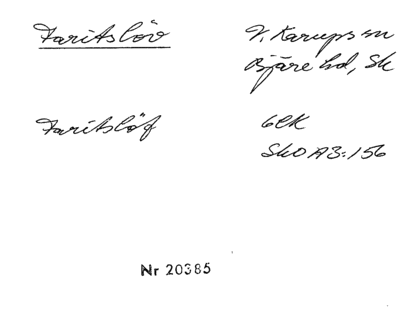 Faritslöv V. Karups sn
Bjäre hd, Sk
Faritslöf GEK
SkO A3:156
Nr 20385